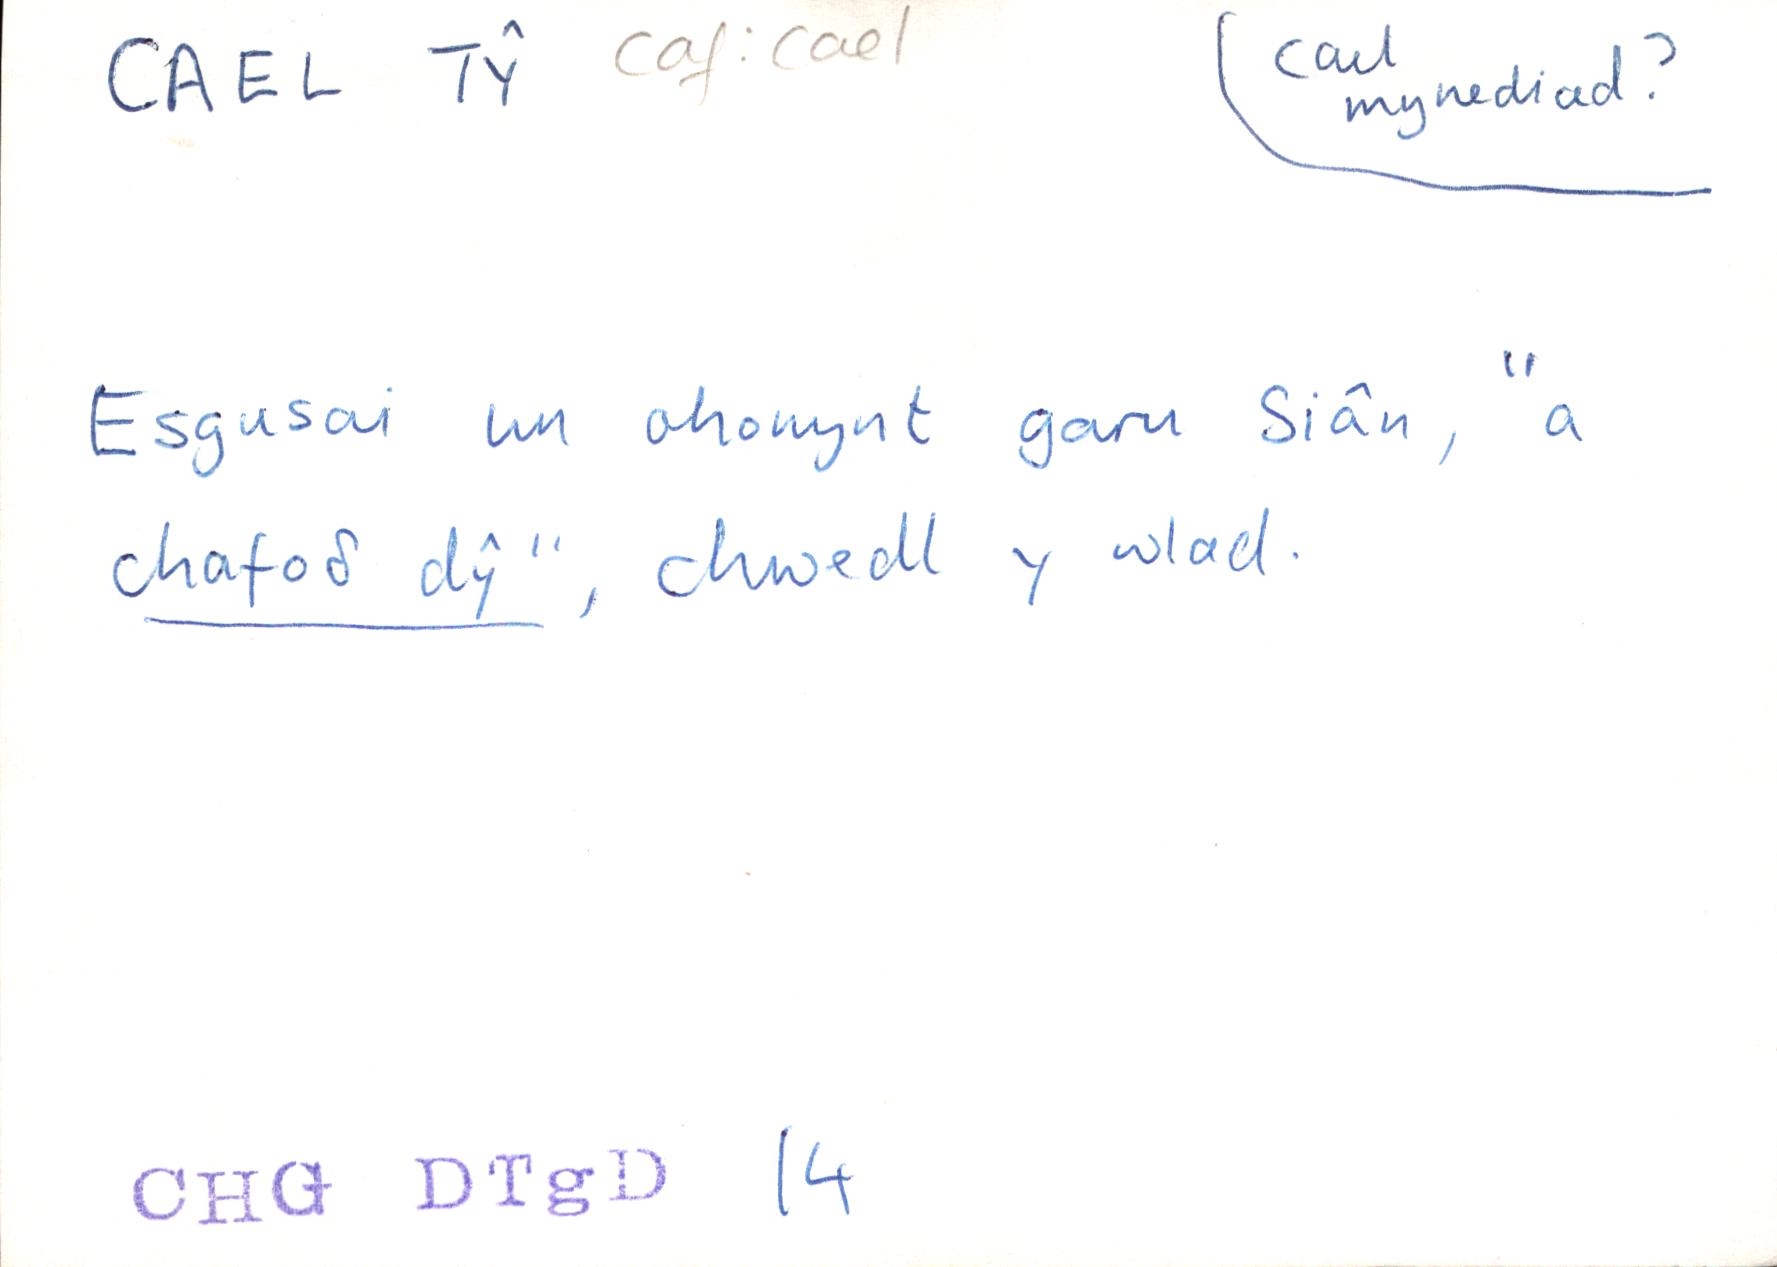 CAEL TŶ caf: cael
(cael
mynediad?
Esgusai un ohonynt garu Siân, "a
chafoδ dŷ", chwedl y wlad.
CHG DTgD 14